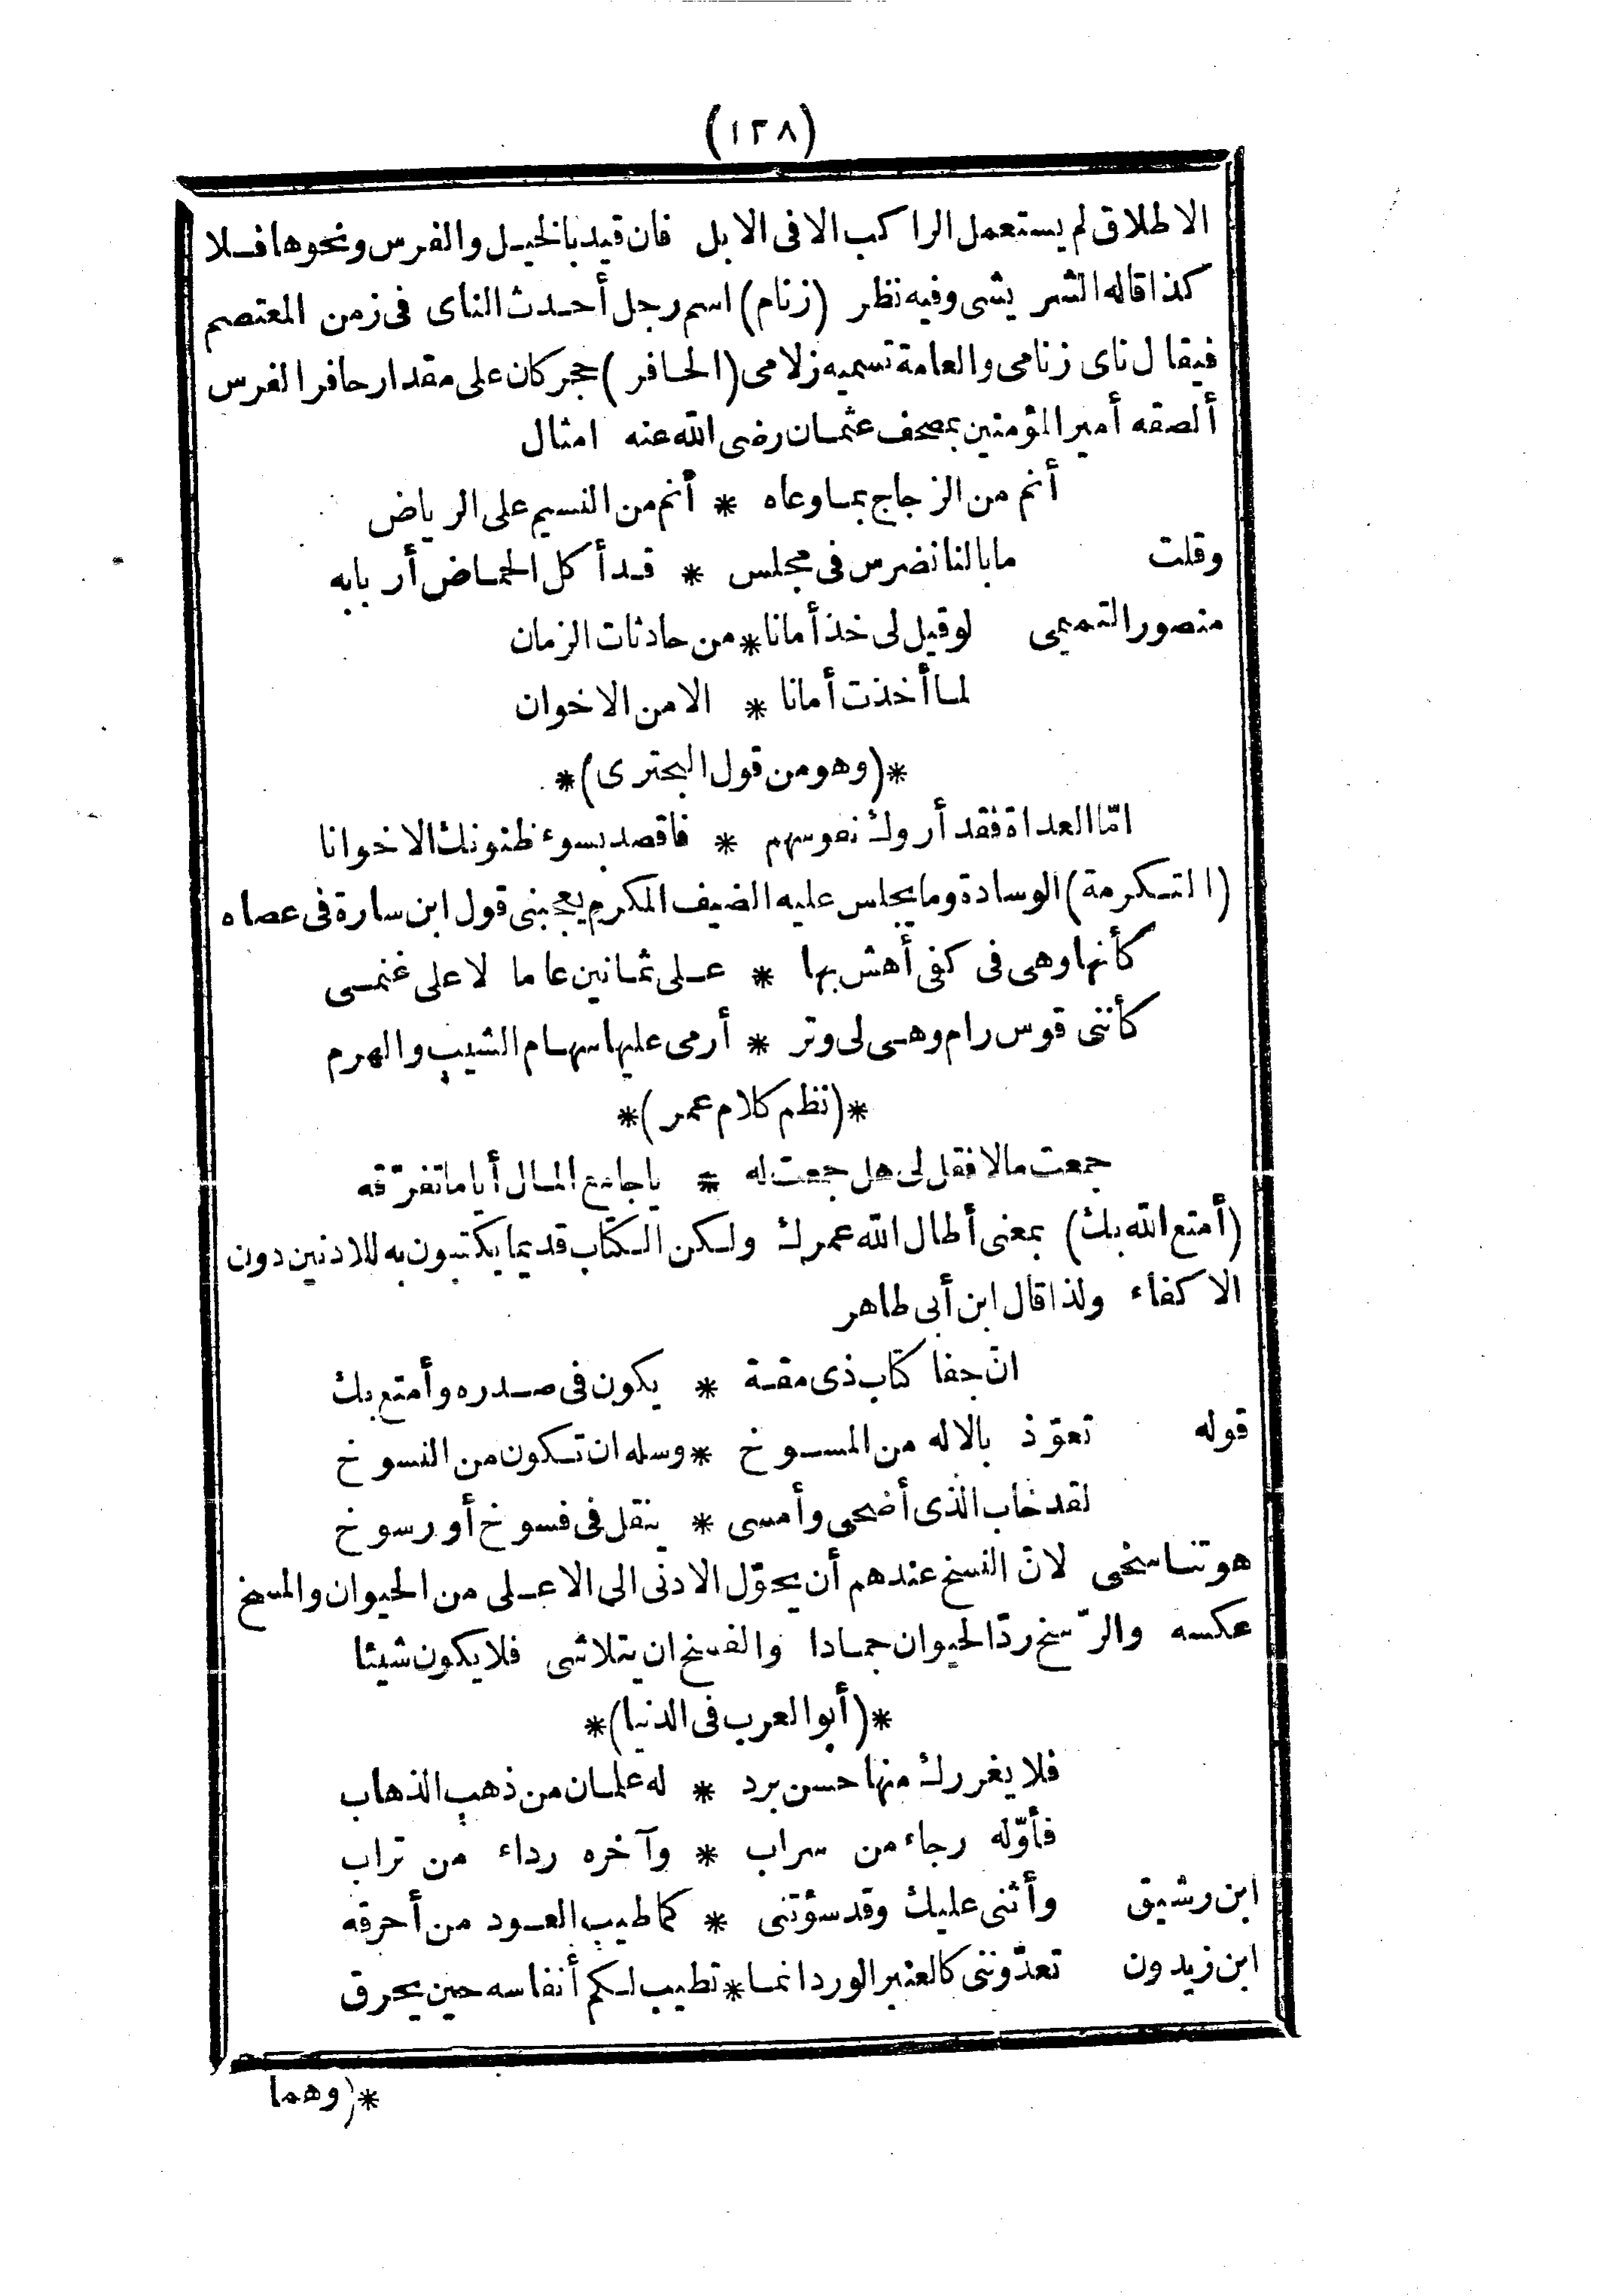 (١٢٨)
الاطلاق لم يستعمل الراكب الا فى الابل فان قيد بالخيل والفرس ونحوها فلا
كذا قاله الشريشى وفيه نظر (زنام) اسم رجل أحدث الناى فى زمن المعتصم
فيقال ناى زنامى والعامة تسميه زلامى (الحافر) حجر كان على مقدار حافر الفرس
ألصقه أمير المؤمنين بمصحف عثمان رضى الله عنه امثال
أنم من الزجاج بما وعاه * أنم من النسيم على الرياض
وقلت ما بالنا نضرس فى مجلس * قد أكل الحماض أربابه
منصور التميمى لو قيل لى خذ أمانا * من حادثات الزمان
لما أخذت أمانا * الا من الاخوان
*(وهو من قول البحترى)*
امّا العداة فقد أروك نفوسهم * فاقصد بسوء ظنونك الاخوانا
(التكرمة) الوسادة وما يجلس عليه الضيف المكرم يعجبنى قول ابن سارة فى عصاه
كأنها وهى فى كفى أهش بها * على ثمانين عاما لا على غنمى
كأننى قوس رام وهى لى وتر * أرمى عليها سهام الشيب والهرم
*(نظم كلام عمر)*
جمعت مالا فقل لى هل جمعت له * يا جامع المال أياما تفرّقه
(أمتع الله بك) بمعنى أطال الله عمرك ولكن الكتاب قديما يكتبون به للادنين دون
الاكفاء ولذا قال ابن أبى طاهر
انّ جفا كتاب ذى مقة * يكون فى صدره وأمتع بك
قوله تعوّذ بالاله من المسوخ * وسله ان تكون من النسوخ
لقد خاب الذى أضحى وأمسى * ينقل فى فسوخ أو رسوخ
هو تناسخى لانّ النسخ عندهم أن يحوّل الادنى الى الاعلى من الحيوان والمسخ
عكسه والرّسخ ردّ الحيوان جمادا والفسخ ان يتلاشى فلا يكون شيئا
*(أبو العرب فى الدنيا)*
فلا يغررك منها حسن برد * له علمان من ذهب الذهاب
فأوّله رجاء من سراب * وآخره رداء من تراب
ابن رشيق وأثنى عليك وقد سؤتنى * كما طيب العود من أحرقه
ابن زيدون تعدّوننى كالعنبر الورد انما * تطيب لكم أنفاسه حين يحرق
*(وهما